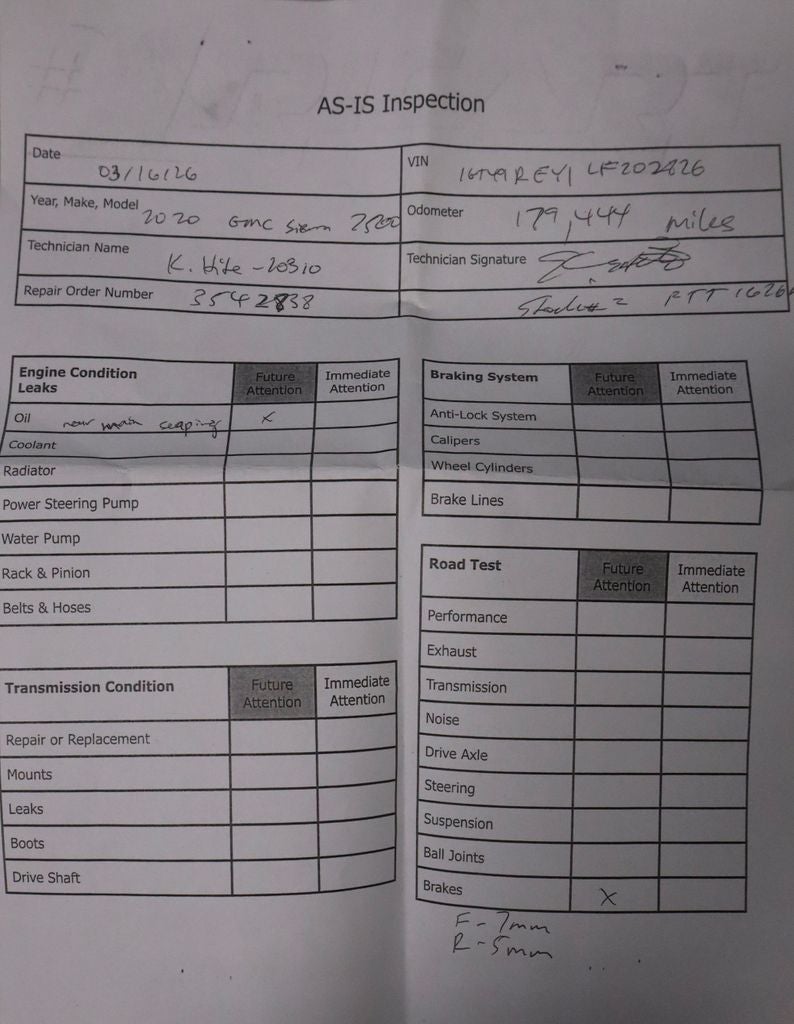 AS-IS Inspection
Date 03/16/26
VIN 1GT49REY1LF202826
Year, Make, Model 2020 GMC Sierra 2500
Odometer 179,444 miles
Technician Name K. Hite - 20310
Technician Signature
Repair Order Number 3542838
Stock# 2 PTT1626A
Engine Condition Leaks Future Attention Immediate Attention
Oil rear main seaping X
Coolant
Radiator
Power Steering Pump
Water Pump
Rack & Pinion
Belts & Hoses
Transmission Condition Future Attention Immediate Attention
Repair or Replacement
Mounts
Leaks
Boots
Drive Shaft
Braking System Future Attention Immediate Attention
Anti-Lock System
Calipers
Wheel Cylinders
Brake Lines
Road Test Future Attention Immediate Attention
Performance
Exhaust
Transmission
Noise
Drive Axle
Steering
Suspension
Ball Joints
Brakes X
F - 7mm
R - 5mm